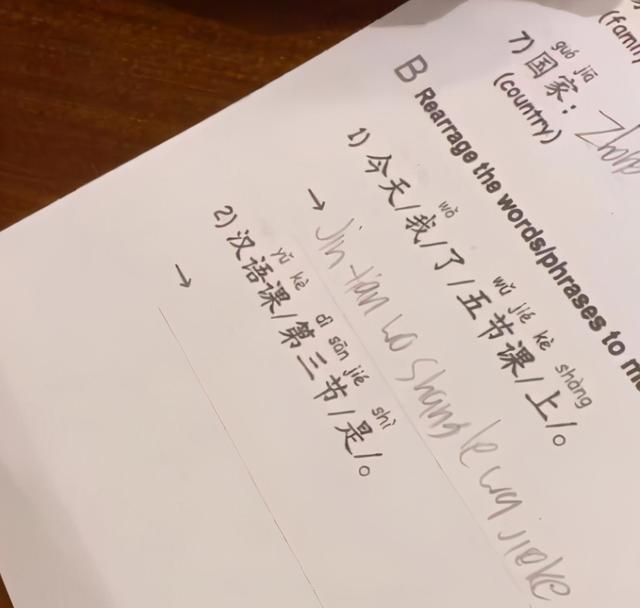 (famil
guó jiā
7) 国家:
(country)
B Rearrage the words/phrases to m
wǒ wǔ jié kè shàng
1) 今天/我/了/五节课/上/。
→ Jin tian wo shang le wu jie ke
yǔ kè dì sān jié shì
2) 汉语课/第三节/是/。
→